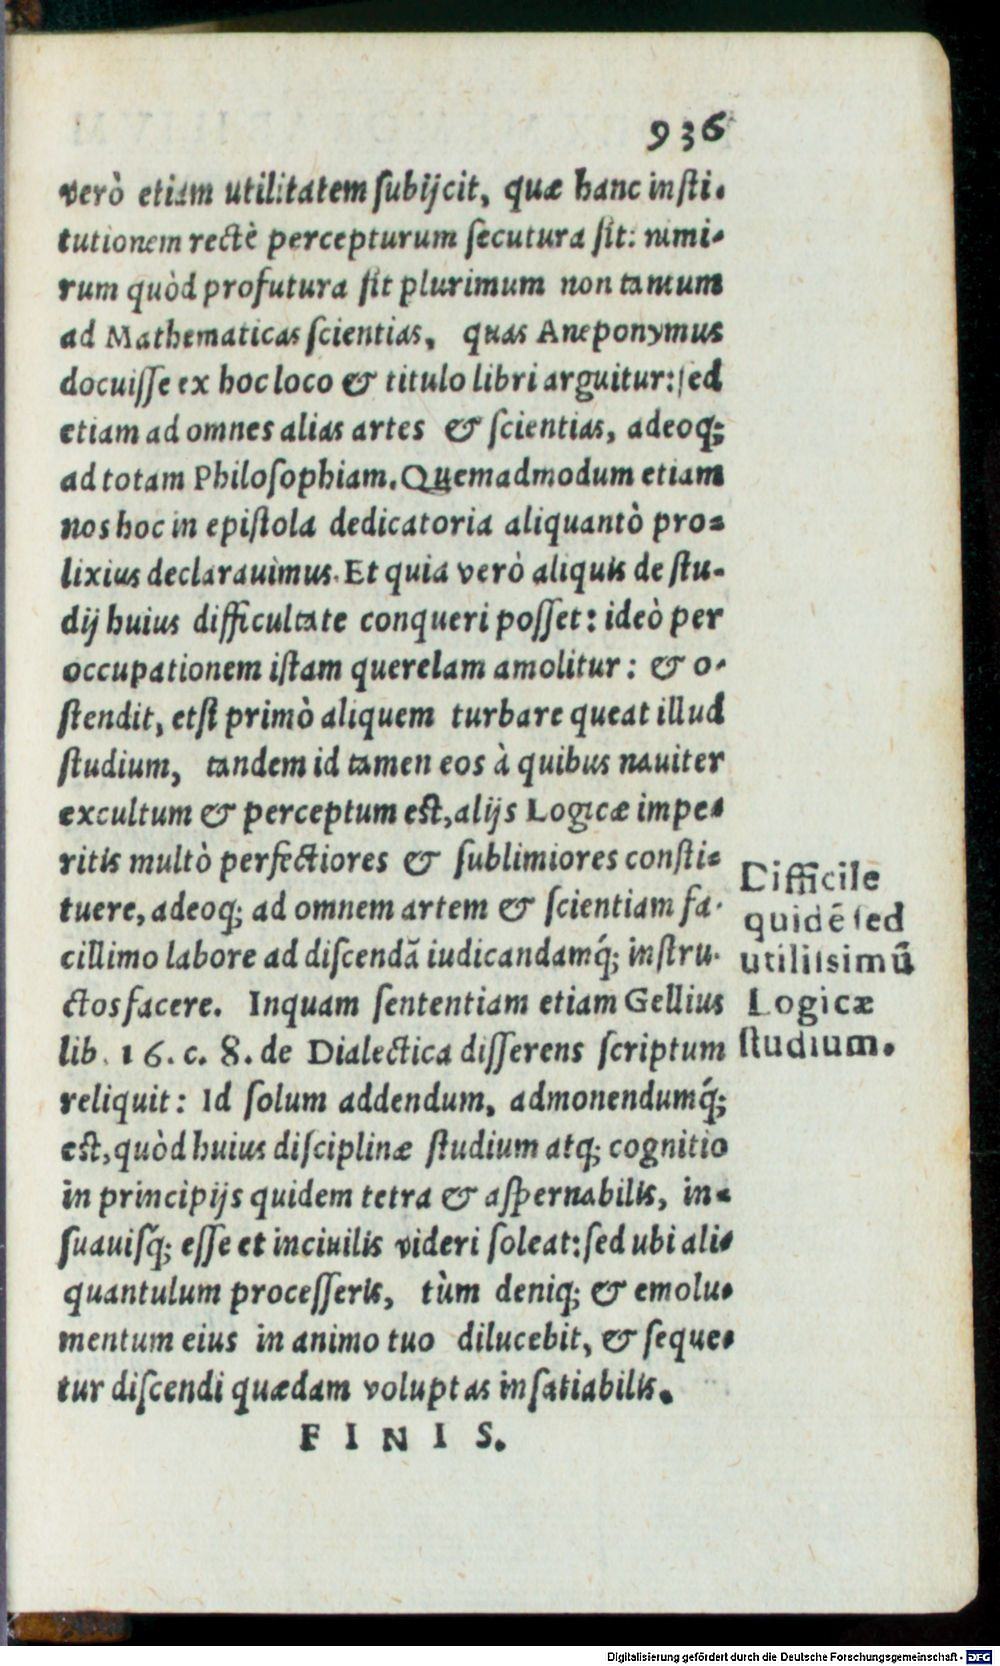 936
verò etiam utilitatem ſubijcit, quæ hanc inſti-
tutionem rectè percepturum ſecutura ſit: nimi-
rum quòd profutura ſit plurimum non tantum
ad Mathematicas ſcientias, quas Aneponymus
docuiſſe ex hoc loco & titulo libri arguitur: ſed
etiam ad omnes alias artes & ſcientias, adeoq;
ad totam Philoſophiam. Quemadmodum etiam
nos hoc in epiſtola dedicatoria aliquantò pro=
lixius declarauimus. Et quia verò aliquis de ſtu-
dij huius difficultate conqueri poſſet: ideò per
occupationem iſtam querelam amolitur: & o-
ſtendit, etſi primò aliquem turbare queat illud
ſtudium, tandem id tamen eos à quibus nauiter
excultum & perceptum eſt, alijs Logicæ impe-
ritis multò perfectiores & ſublimiores conſti=
tuere, adeoq; ad omnem artem & ſcientiam fa-
cillimo labore ad diſcendā iudicandamq́; inſtru-
ctos facere. Inquam ſententiam etiam Gellius
lib. 16. c. 8. de Dialectica diſſerens ſcriptum
reliquit: Id ſolum addendum, admonendumq́;
eſt, quòd huius diſciplinæ ſtudium atq; cognitio
in principijs quidem tetra & aſpernabilis, in-
ſuauiſq́; eſſe et inciuilis videri ſoleat: ſed ubi ali-
quantulum proceſſeris, tùm deniq; & emolu-
mentum eius in animo tuo dilucebit, & ſeque-
tur diſcendi quædam voluptas inſatiabilis.
FINIS.
Difficile
quidē ſed
utiliſsimū
Logicæ
ſtudium.
Digitalisierung gefördert durch die Deutsche Forschungsgemeinschaft - DFG